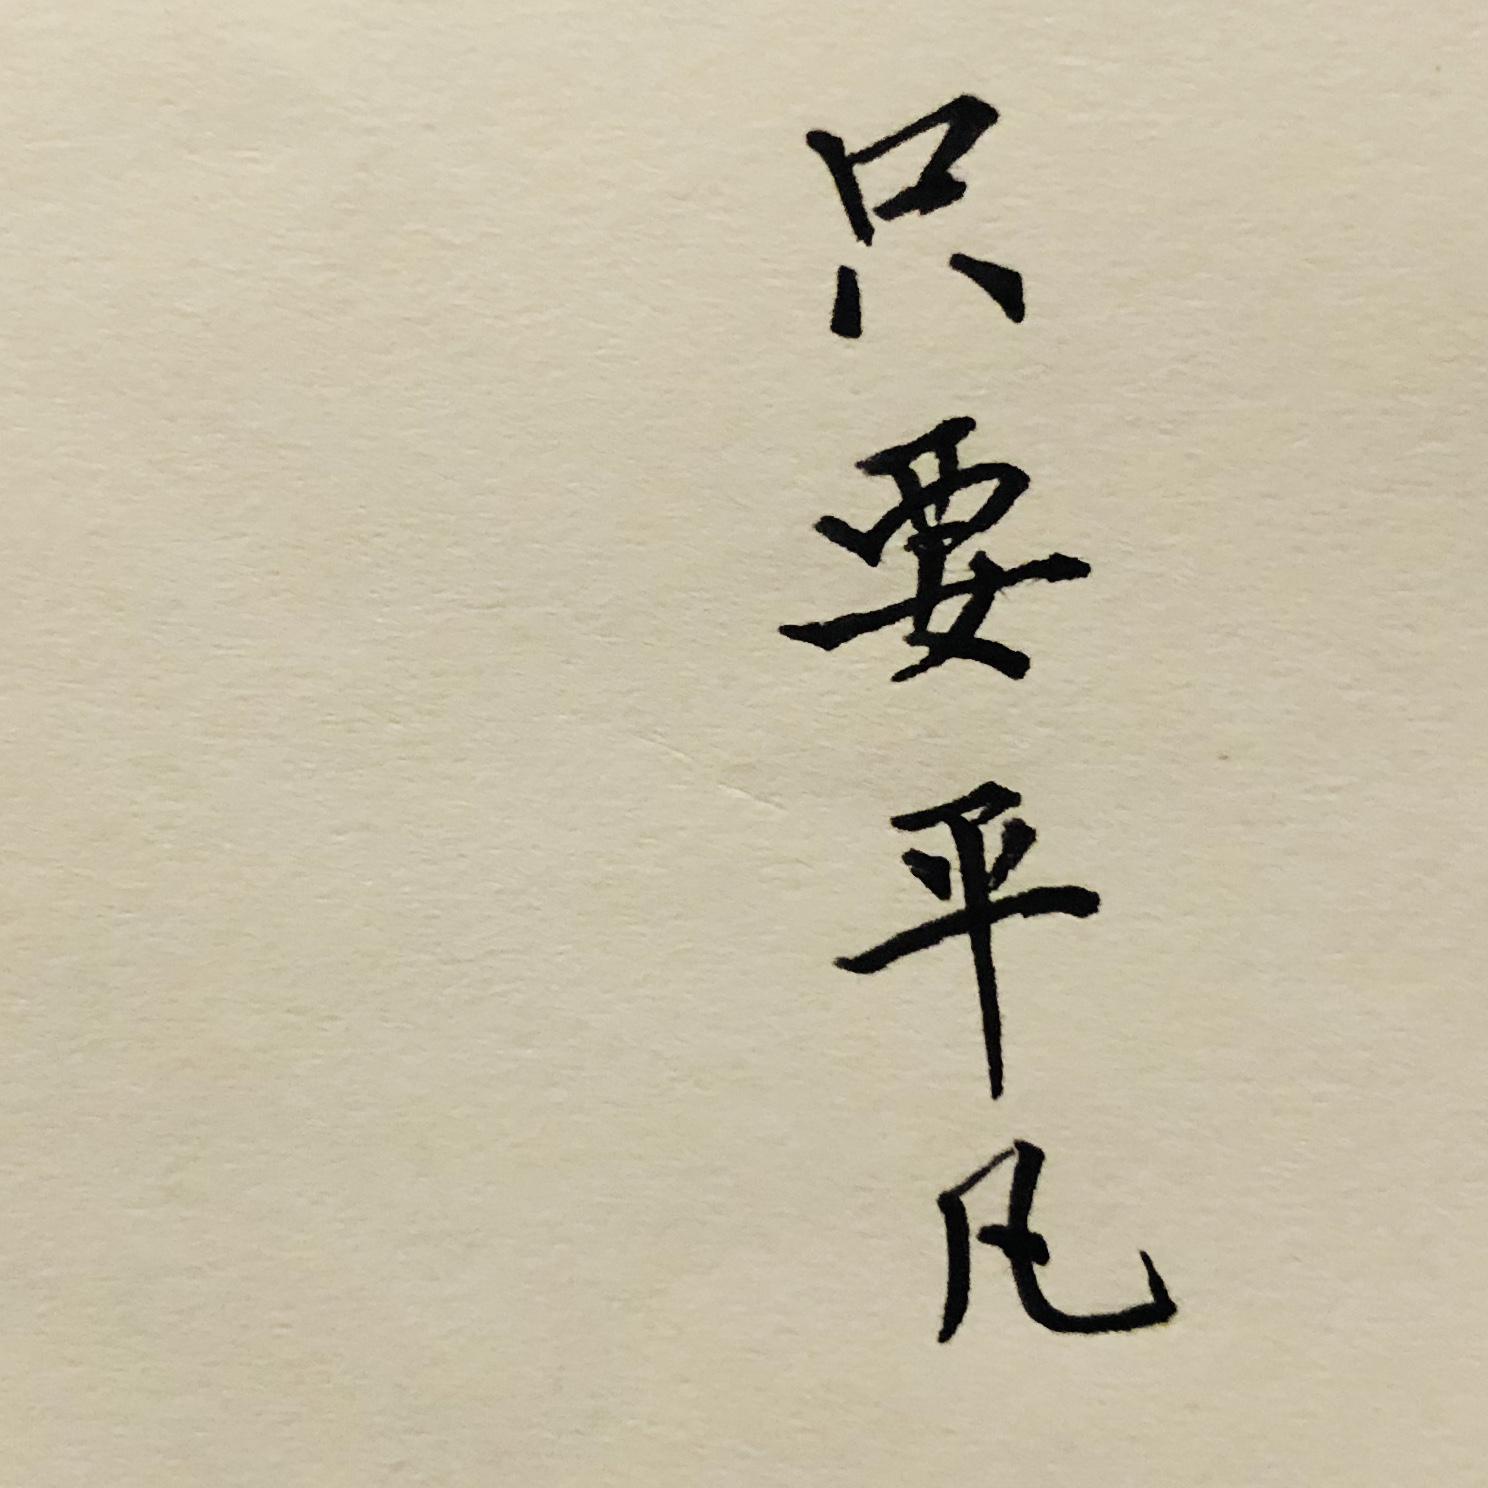 只要平凡